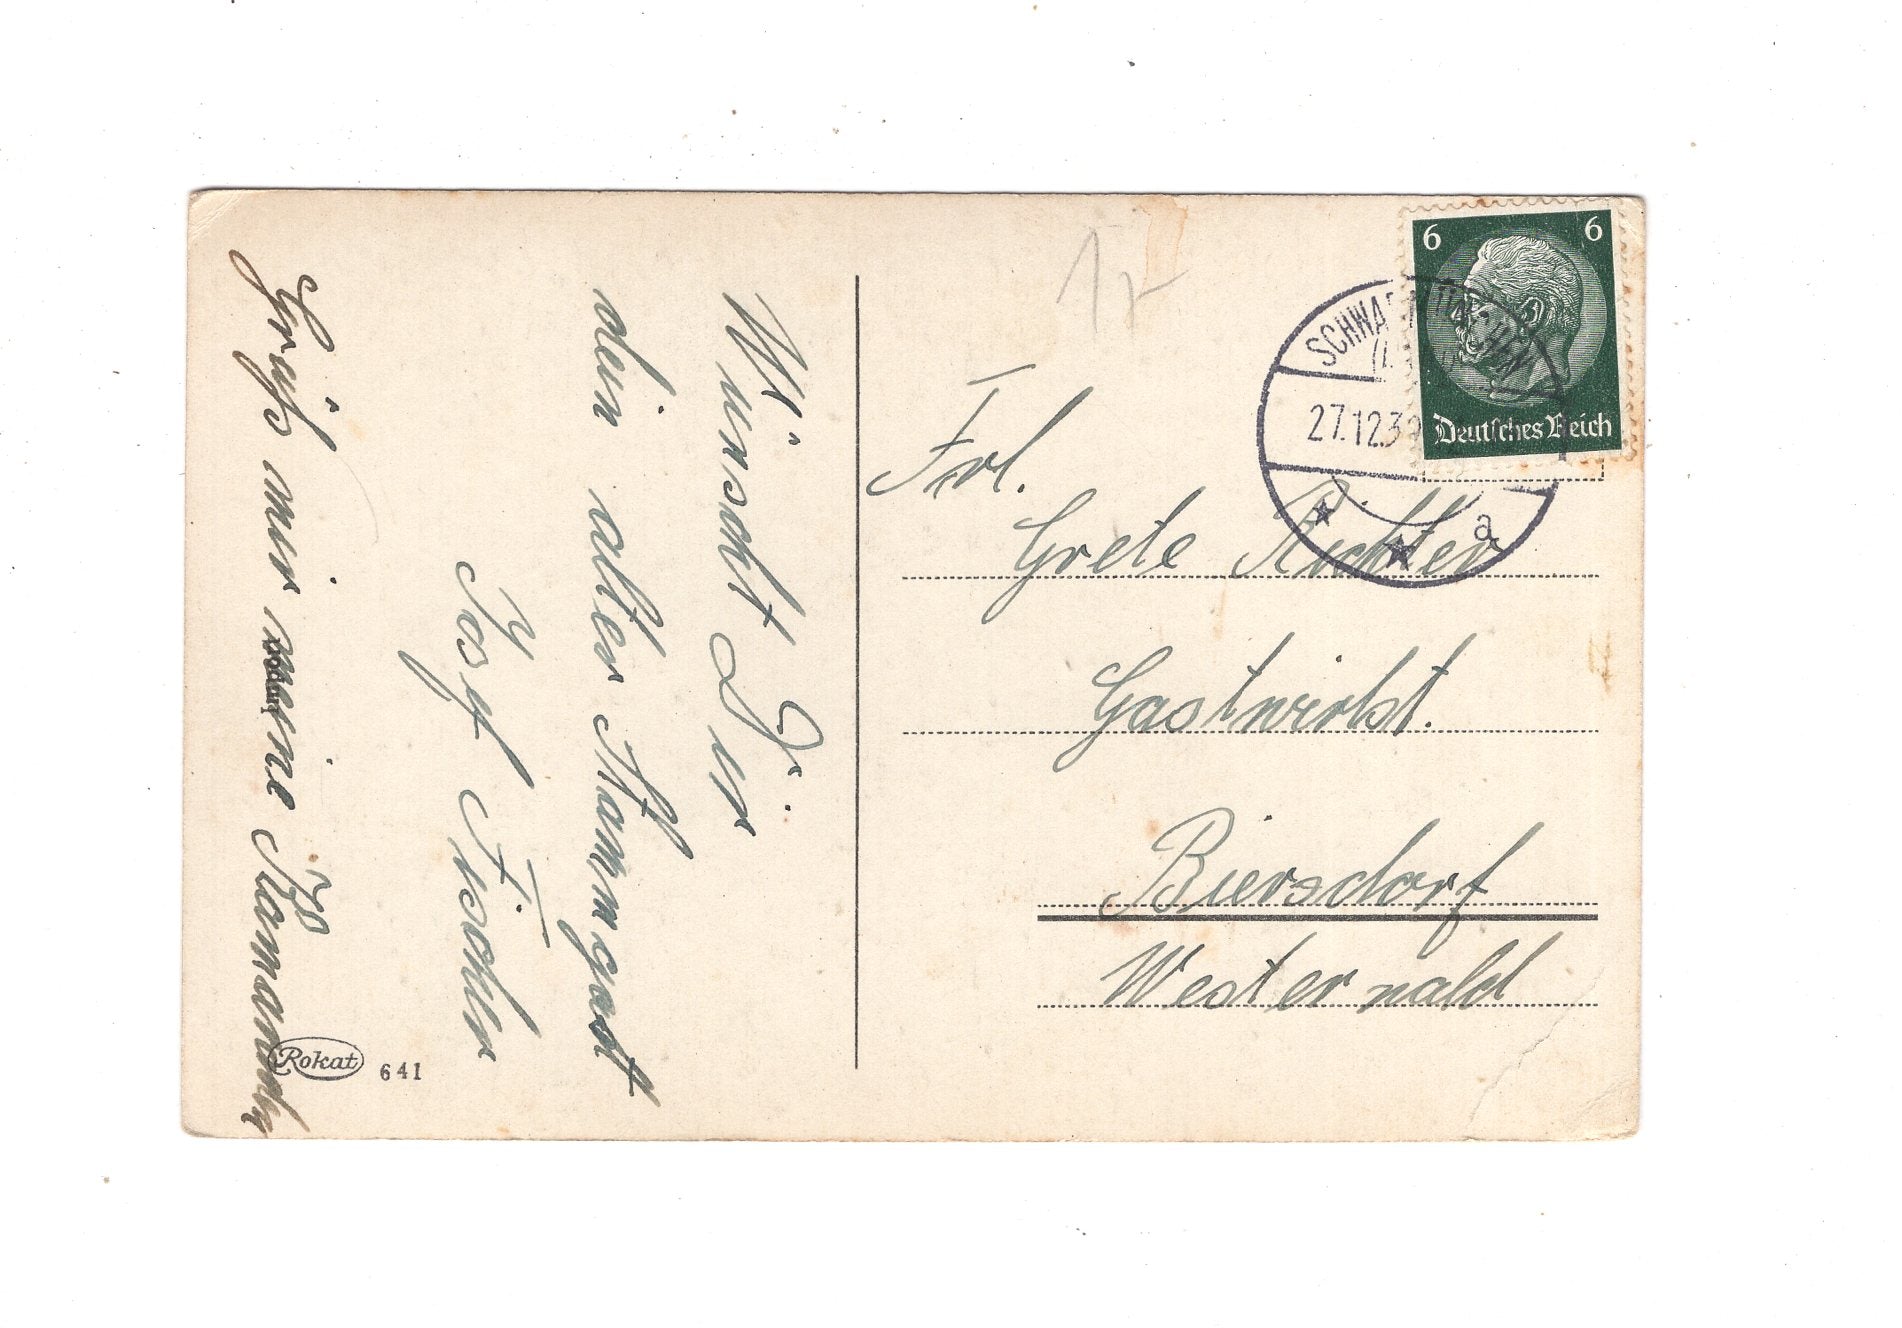 Wünscht Dir
dein alter Stammgast
Josf Fischer
Grüß mir meine
Rokat 641
6 6
Deutsches Reich
SCHWA
27.12.39
a
Frl.
Grete Richter
Gastwirtst.
Biersdorf
Westerwald